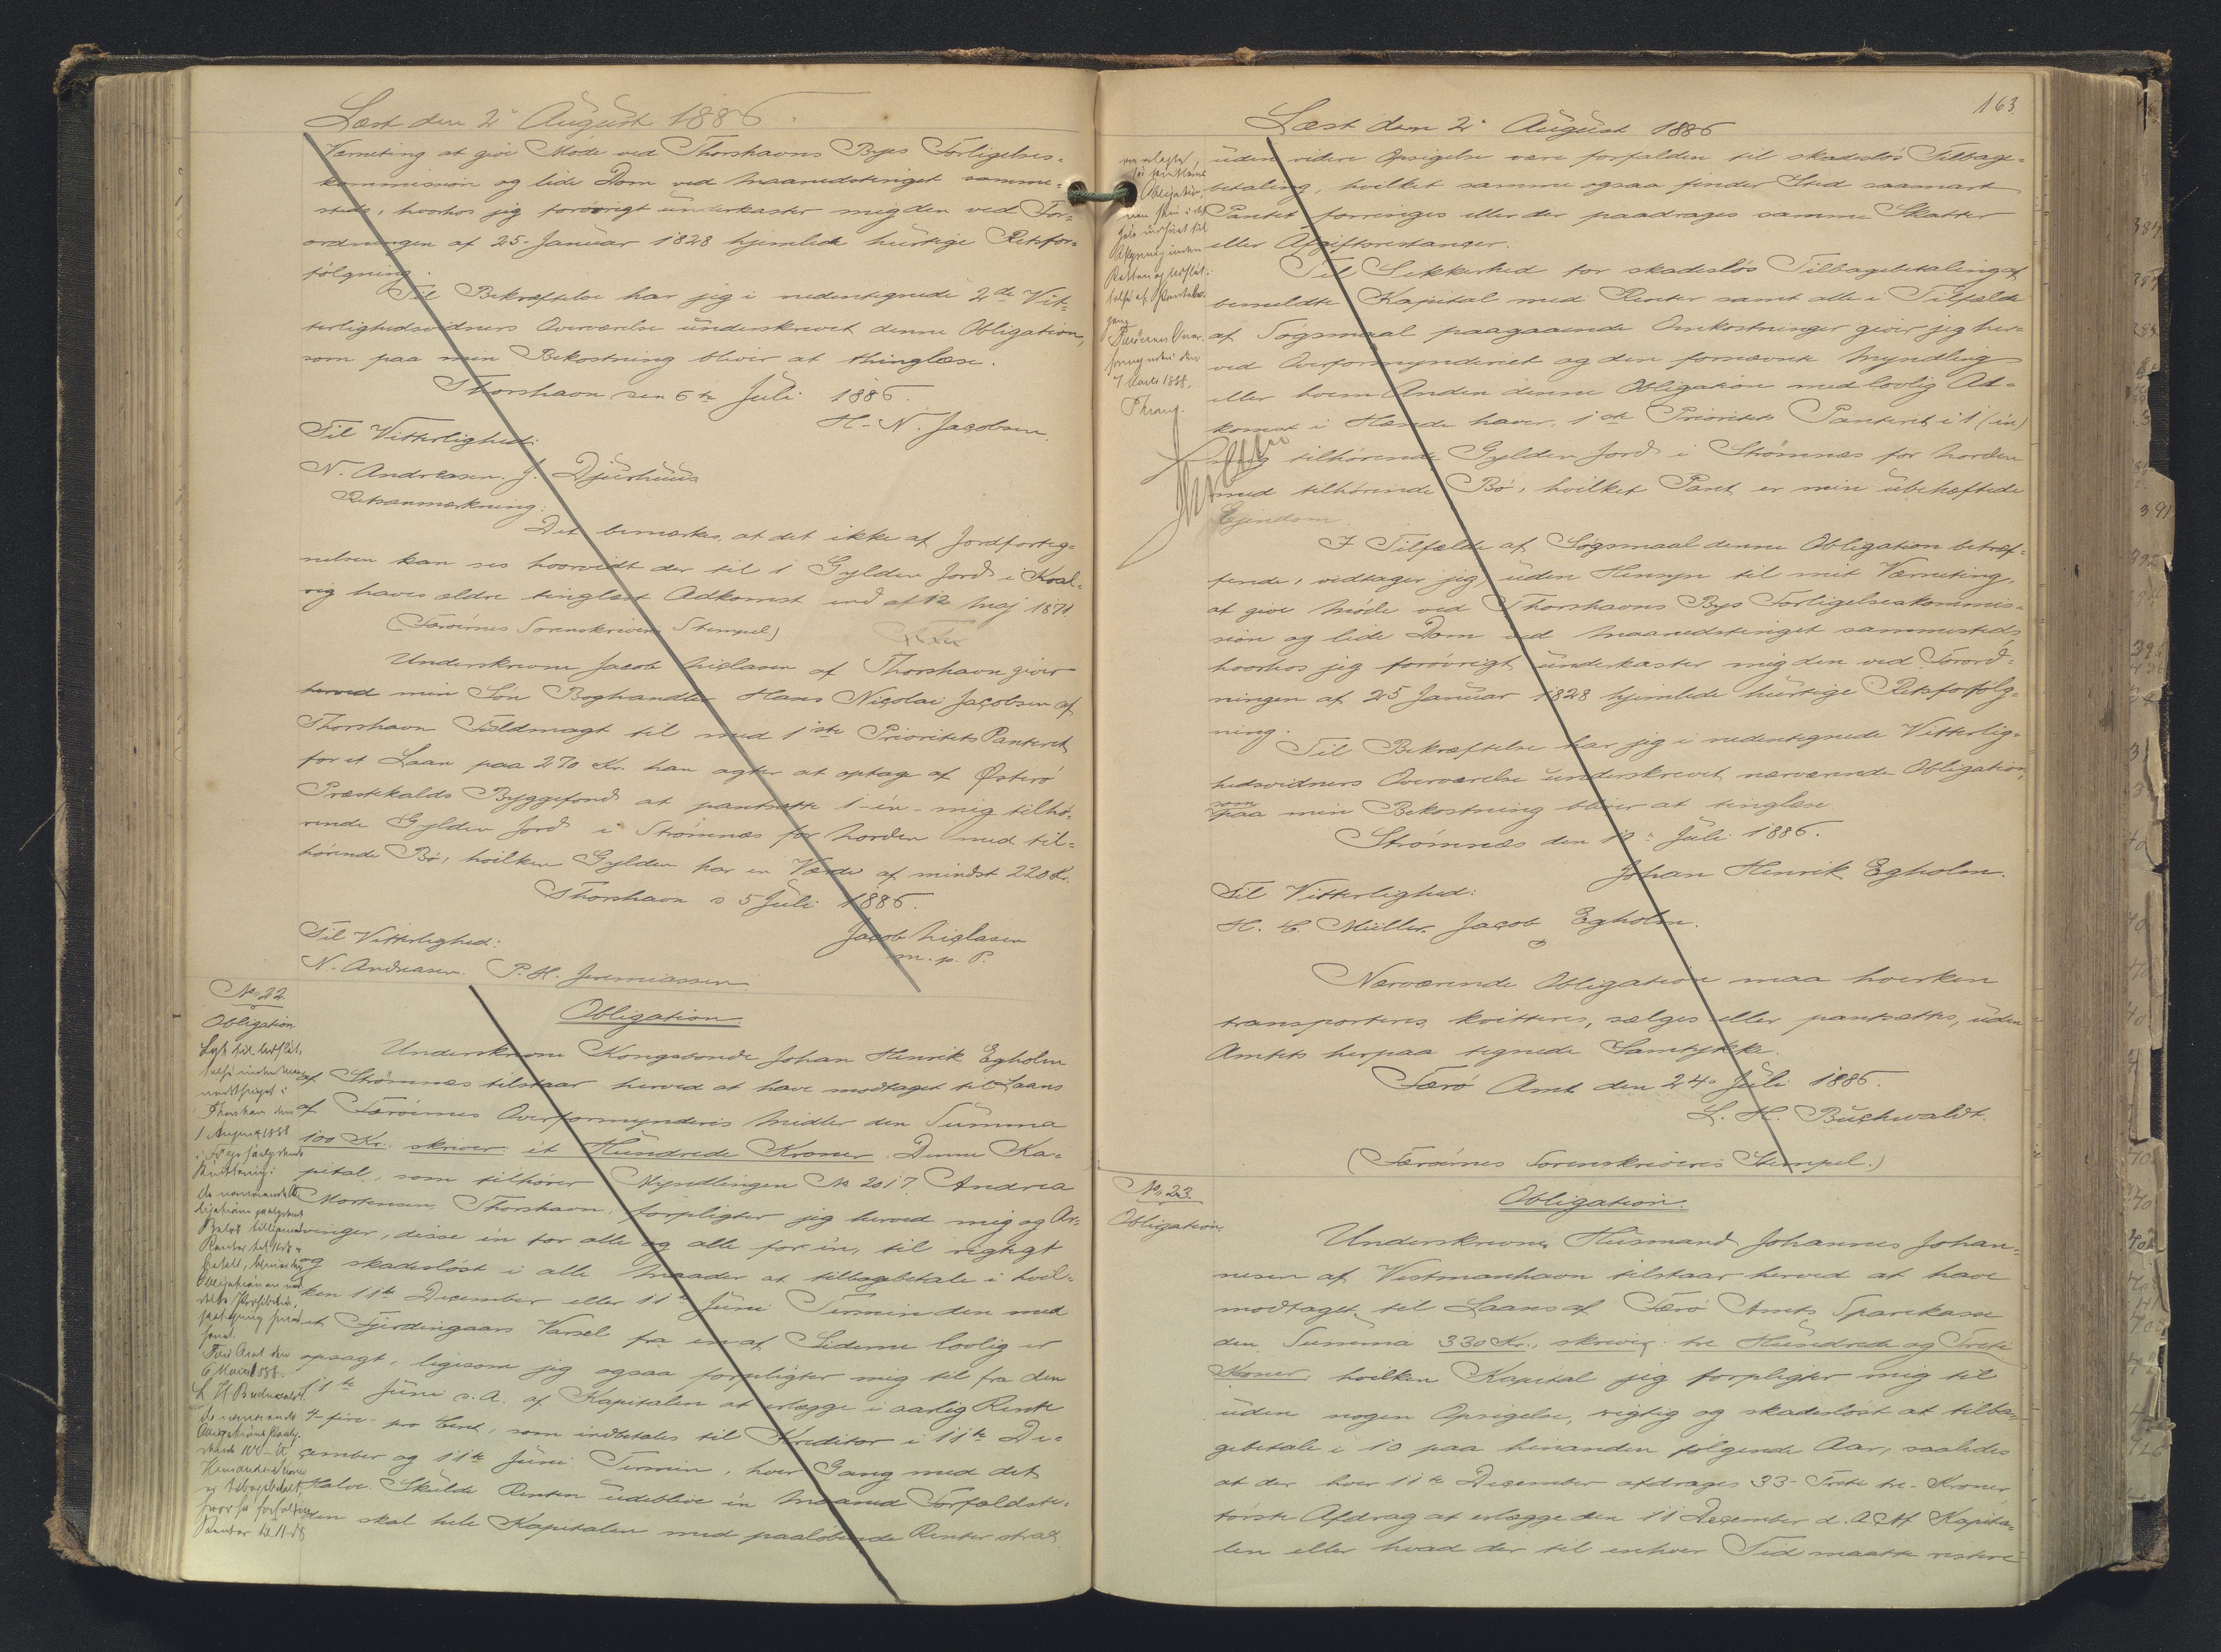 Læst den 2' August 1886.
Værneting at give Møde ved Thorshavns Byes Forligelses-
kommission og lide Dom ved Maanedstinget samme-
steds, hvorhos jeg forøvrigt underkaster mig den ved For-
ordningen af 25. Januar 1828 hjemlede hurtige Retsfor-
følgning.
Til Bekræftelse har jeg i nedentegnede 2de Vit-
terlighedsvidners Overværelse underskrevet denne Obligation,
som paa min Bekostning bliver at thinglæse.
Thorshavn den 6te Juli 1886.
H. N. Jacobsen.
Til Vitterlighed:
N. Andreasen. J. Djurhuus
Retsanmærkning:
Det bemærkes, at det ikke af Jordforteg-
nelsen kan ses hvorvidt der til 1 Gylden Jord i Kval-
vig haves ældre tinglæst Adkomst end af 12 Maj 1871.
(Færøernes Sorenskriveri Stempel)
Underskrevne Jacob Niclasen af Thorshavn giver
herved min Søn Boghandler Hans Nicolai Jacobsen af
Thorshavn Fuldmagt til med 1ste Prioritets Panteret
for et Laan paa 270 Kr. han agter at optage af Østerø
Præstekalds Byggefond at pantsætte 1-én- mig tilhø-
rende Gylden Jord i Strømnæs for Norden med til-
hørende Bø, hvilken Gylden har en Værdi af mindst 220 Kr.
Thorshavn d 5 Juli 1886.
Jacob Niclasen
m. p. P.
Til Vitterlighed:
N. Andreasen. P. H. Jeremiassen
No. 22
Obligation
Obligation
Lyst til Udslet-
telse under Maa-
nedsthinget i
Thorshavn den
1 August 1888
Underskrevne Kongsbonde Johan Henrik Egholm
af Strømnæs tilstaar herved at have modtaget til Laans
af Færøernes Overformynderis Midler den Summa
100 Kr. skriver: ét Hundrede Kroner. Denne Ka-
pital, som tilhører Myndlingen No 2017 Andrea
Mortensen, Thorshavn, forpligter jeg herved mig og Ar-
vinger, disse én for alle og alle for én, til rigtigt
og skadesløst i alle Maader at tilbagebetale i hvil-
ken 11te December eller 11te Juni Termin den med
et Fjerdingaars Varsel fra en af Siderne lovlig er
opsagt, ligesom jeg ogsaa forpligter mig til fra den
11te Juni d. A. af Kapitalen at erlægge i aarlig Rente
4-fire- pro Cent, som indbetales til Kreditor i 11te De-
cember og 11te Juni Termin, hver Gang med det
Halve. Skulde Renten udeblive én Maaned Forfaldsti-
den skal hele Kapitalen med paaløbende Renter strax
Færø Amt den
6 Marts 1888.
L H Buchwaldt.
163
Læst den 2' August 1886
uden videre Opsigelse være forfalden til skadesløs Tilbage-
betaling, hvilket samme ogsaa finder Sted saasnart
Pantet forringes eller der paadrages samme Skatter
eller Afgiftsrestancer.
Til Sikkerhed for skadesløs Tilbagebetaling af
bemeldte Kapital med Renter samt alle i Tilfælde
af Søgsmaal paagaaende Omkostninger giver jeg her-
ved Overformynderiet og den fornævnte Myndling
eller hvem Anden denne Obligation med lovlig Ad-
komst i Hænde haver, 1ste Prioritets Panteret i 1 (én)
mig tilhørende Gylden Jord i Strømnæs for Norden
med tilhørende Bø, hvilket Pant er min ubehæftede
Ejendom.
Færøernes Over-
formynderi den
7 Marts 1888.
I Tilfælde af Søgsmaal denne Obligation betræf-
fende, vedtager jeg, uden Hensyn til mit Værneting,
at give Møde ved Thorshavns Byes Forligelseskommis-
sion og lide Dom ved Maanedstinget sammesteds
hvorhos jeg forøvrigt underkaster mig den ved Forord-
ningen af 25 Januar 1828 hjemlede hurtige Retsforfølg-
ning.
Til Bekræftelse har jeg i nedentegnede Vitterlig-
hedsvidners Overværelse underskrevet nærværende Obligation,
som
paa min Bekostning bliver at tinglæse.
Strømnæs den 12' Juli 1886.
Johan Henrik Egholm.
Til Vitterlighed:
H. C. Müller. Jacob Egholm.
Nærværende Obligation maa hverken
transporteres, kvitteres, sælges eller pantsættes, uden
Amtets herpaa tegnede Samtykke.
Færø Amt den 24. Juli 1886.
L. H. Buchwaldt.
(Færøernes Sorenskriveris Stempel.)
No. 23.
Obligation.
Obligation.
Underskrevne Husmand Johannes Johan-
nesen af Vestmanhavn tilstaar herved at have
modtaget til Laans af Færø Amts Sparekasse
den Summa 330 Kr., skriver: tre Hundrede og Treti
Kroner, hvilken Kapital jeg forpligter mig til
uden nogen Opsigelse, rigtig og skadesløst at tilba-
gebetale i 10 paa hinanden følgende Aar, saaledes
at der hver 11te December afdrages 33- Treti tre- Kroner,
første Afdrag at erlægge den 11 December d. A. Af Kapita-
len eller hvad der til enhver Tid maatte restere